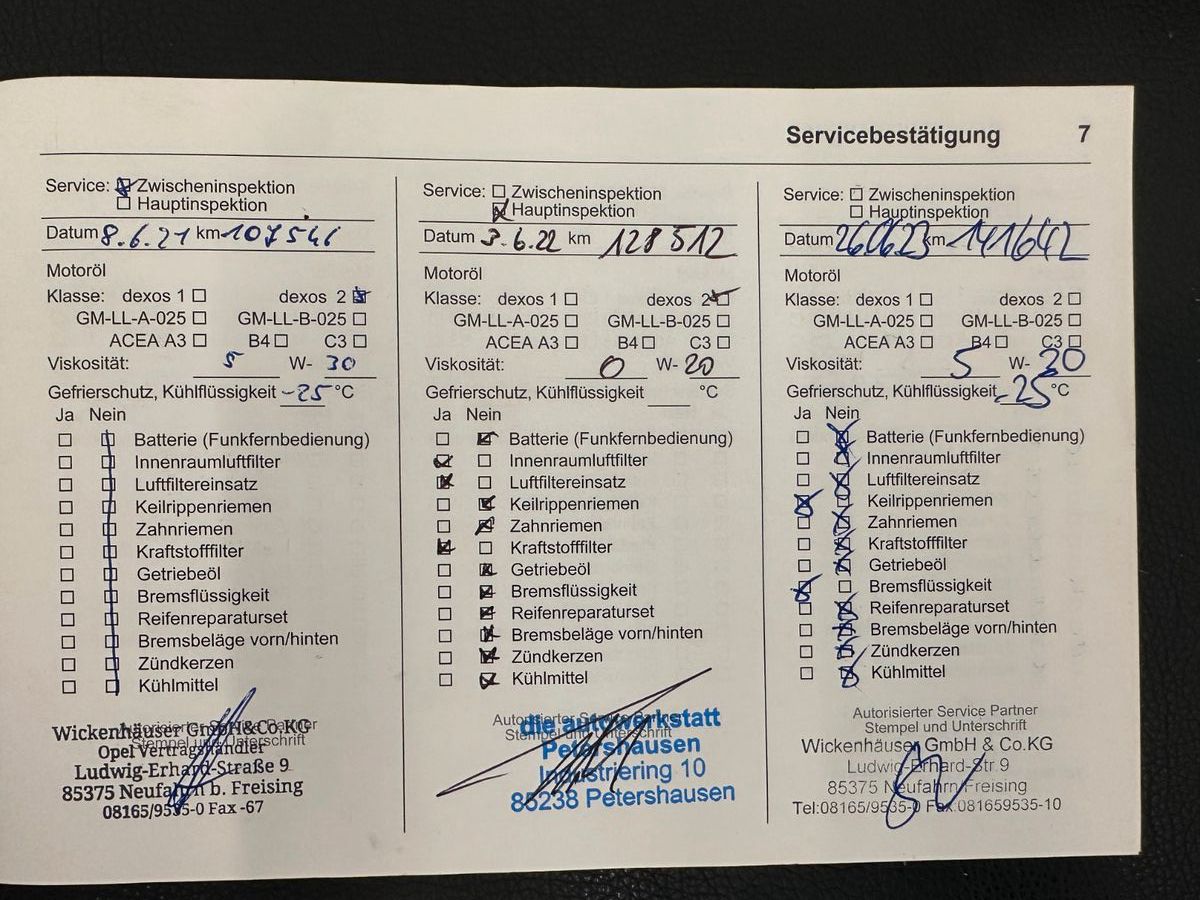 Servicebestätigung 7
Service: Zwischeninspektion
Hauptinspektion
Datum 8.6.21 km 107546
Motoröl
Klasse: dexos 1 dexos 2
GM-LL-A-025 GM-LL-B-025
ACEA A3 B4 C3
Viskosität: 5 W- 30
Gefrierschutz, Kühlflüssigkeit -25 °C
Ja Nein
Batterie (Funkfernbedienung)
Innenraumluftfilter
Luftfiltereinsatz
Keilrippenriemen
Zahnriemen
Kraftstofffilter
Getriebeöl
Bremsflüssigkeit
Reifenreparaturset
Bremsbeläge vorn/hinten
Zündkerzen
Kühlmittel
Autorisierter Service Partner
Stempel und Unterschrift
Wickenhäuser GmbH&Co.KG
Opel Vertragshändler
Ludwig-Erhard-Straße 9
85375 Neufahrn b. Freising
08165/9535-0 Fax -67
Service: Zwischeninspektion
Hauptinspektion
Datum 3.6.22 km 128512
Motoröl
Klasse: dexos 1 dexos 2
GM-LL-A-025 GM-LL-B-025
ACEA A3 B4 C3
Viskosität: 0 W- 20
Gefrierschutz, Kühlflüssigkeit °C
Ja Nein
Batterie (Funkfernbedienung)
Innenraumluftfilter
Luftfiltereinsatz
Keilrippenriemen
Zahnriemen
Kraftstofffilter
Getriebeöl
Bremsflüssigkeit
Reifenreparaturset
Bremsbeläge vorn/hinten
Zündkerzen
Kühlmittel
Autorisierter Service Partner
Stempel und Unterschrift
die autowerkstatt
Petershausen
Industriering 10
85238 Petershausen
Service: Zwischeninspektion
Hauptinspektion
Datum 26.06.23 km 141642
Motoröl
Klasse: dexos 1 dexos 2
GM-LL-A-025 GM-LL-B-025
ACEA A3 B4 C3
Viskosität: 5 W- 30
Gefrierschutz, Kühlflüssigkeit -25 °C
Ja Nein
Batterie (Funkfernbedienung)
Innenraumluftfilter
Luftfiltereinsatz
Keilrippenriemen
Zahnriemen
Kraftstofffilter
Getriebeöl
Bremsflüssigkeit
Reifenreparaturset
Bremsbeläge vorn/hinten
Zündkerzen
Kühlmittel
Autorisierter Service Partner
Stempel und Unterschrift
Wickenhäuser GmbH & Co.KG
Ludwig-Erhard-Str.9
85375 Neufahrn/Freising
Tel:08165/9535-0 Fax:081659535-10